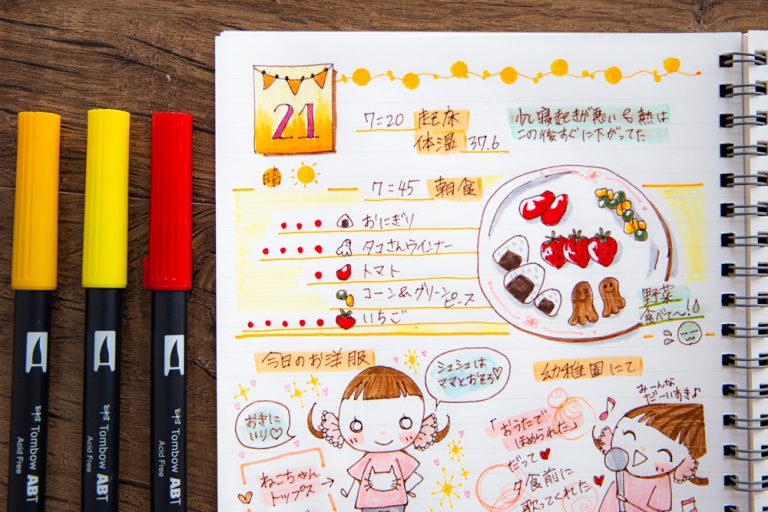 21
7:20 起床
体温 37.6
少し寝起きが悪い 熱は
この後すぐに下がってた
7:45 朝食
おにぎり
タコさんウインナー
トマト
コーン&グリーン
ピース
いちご
野菜
食べて〜!
今日のお洋服
シュシュは
ママとおそろ
おきに
いり
ねこちゃん
トップス
幼稚園にて
みーんな
だーいすき♪
「おうたで
ほめられた」
だって
夕食前に
歌ってくれた
Tombow ABT
Acid Free
Tombow ABT
Acid Free
Tombow ABT
Acid Free